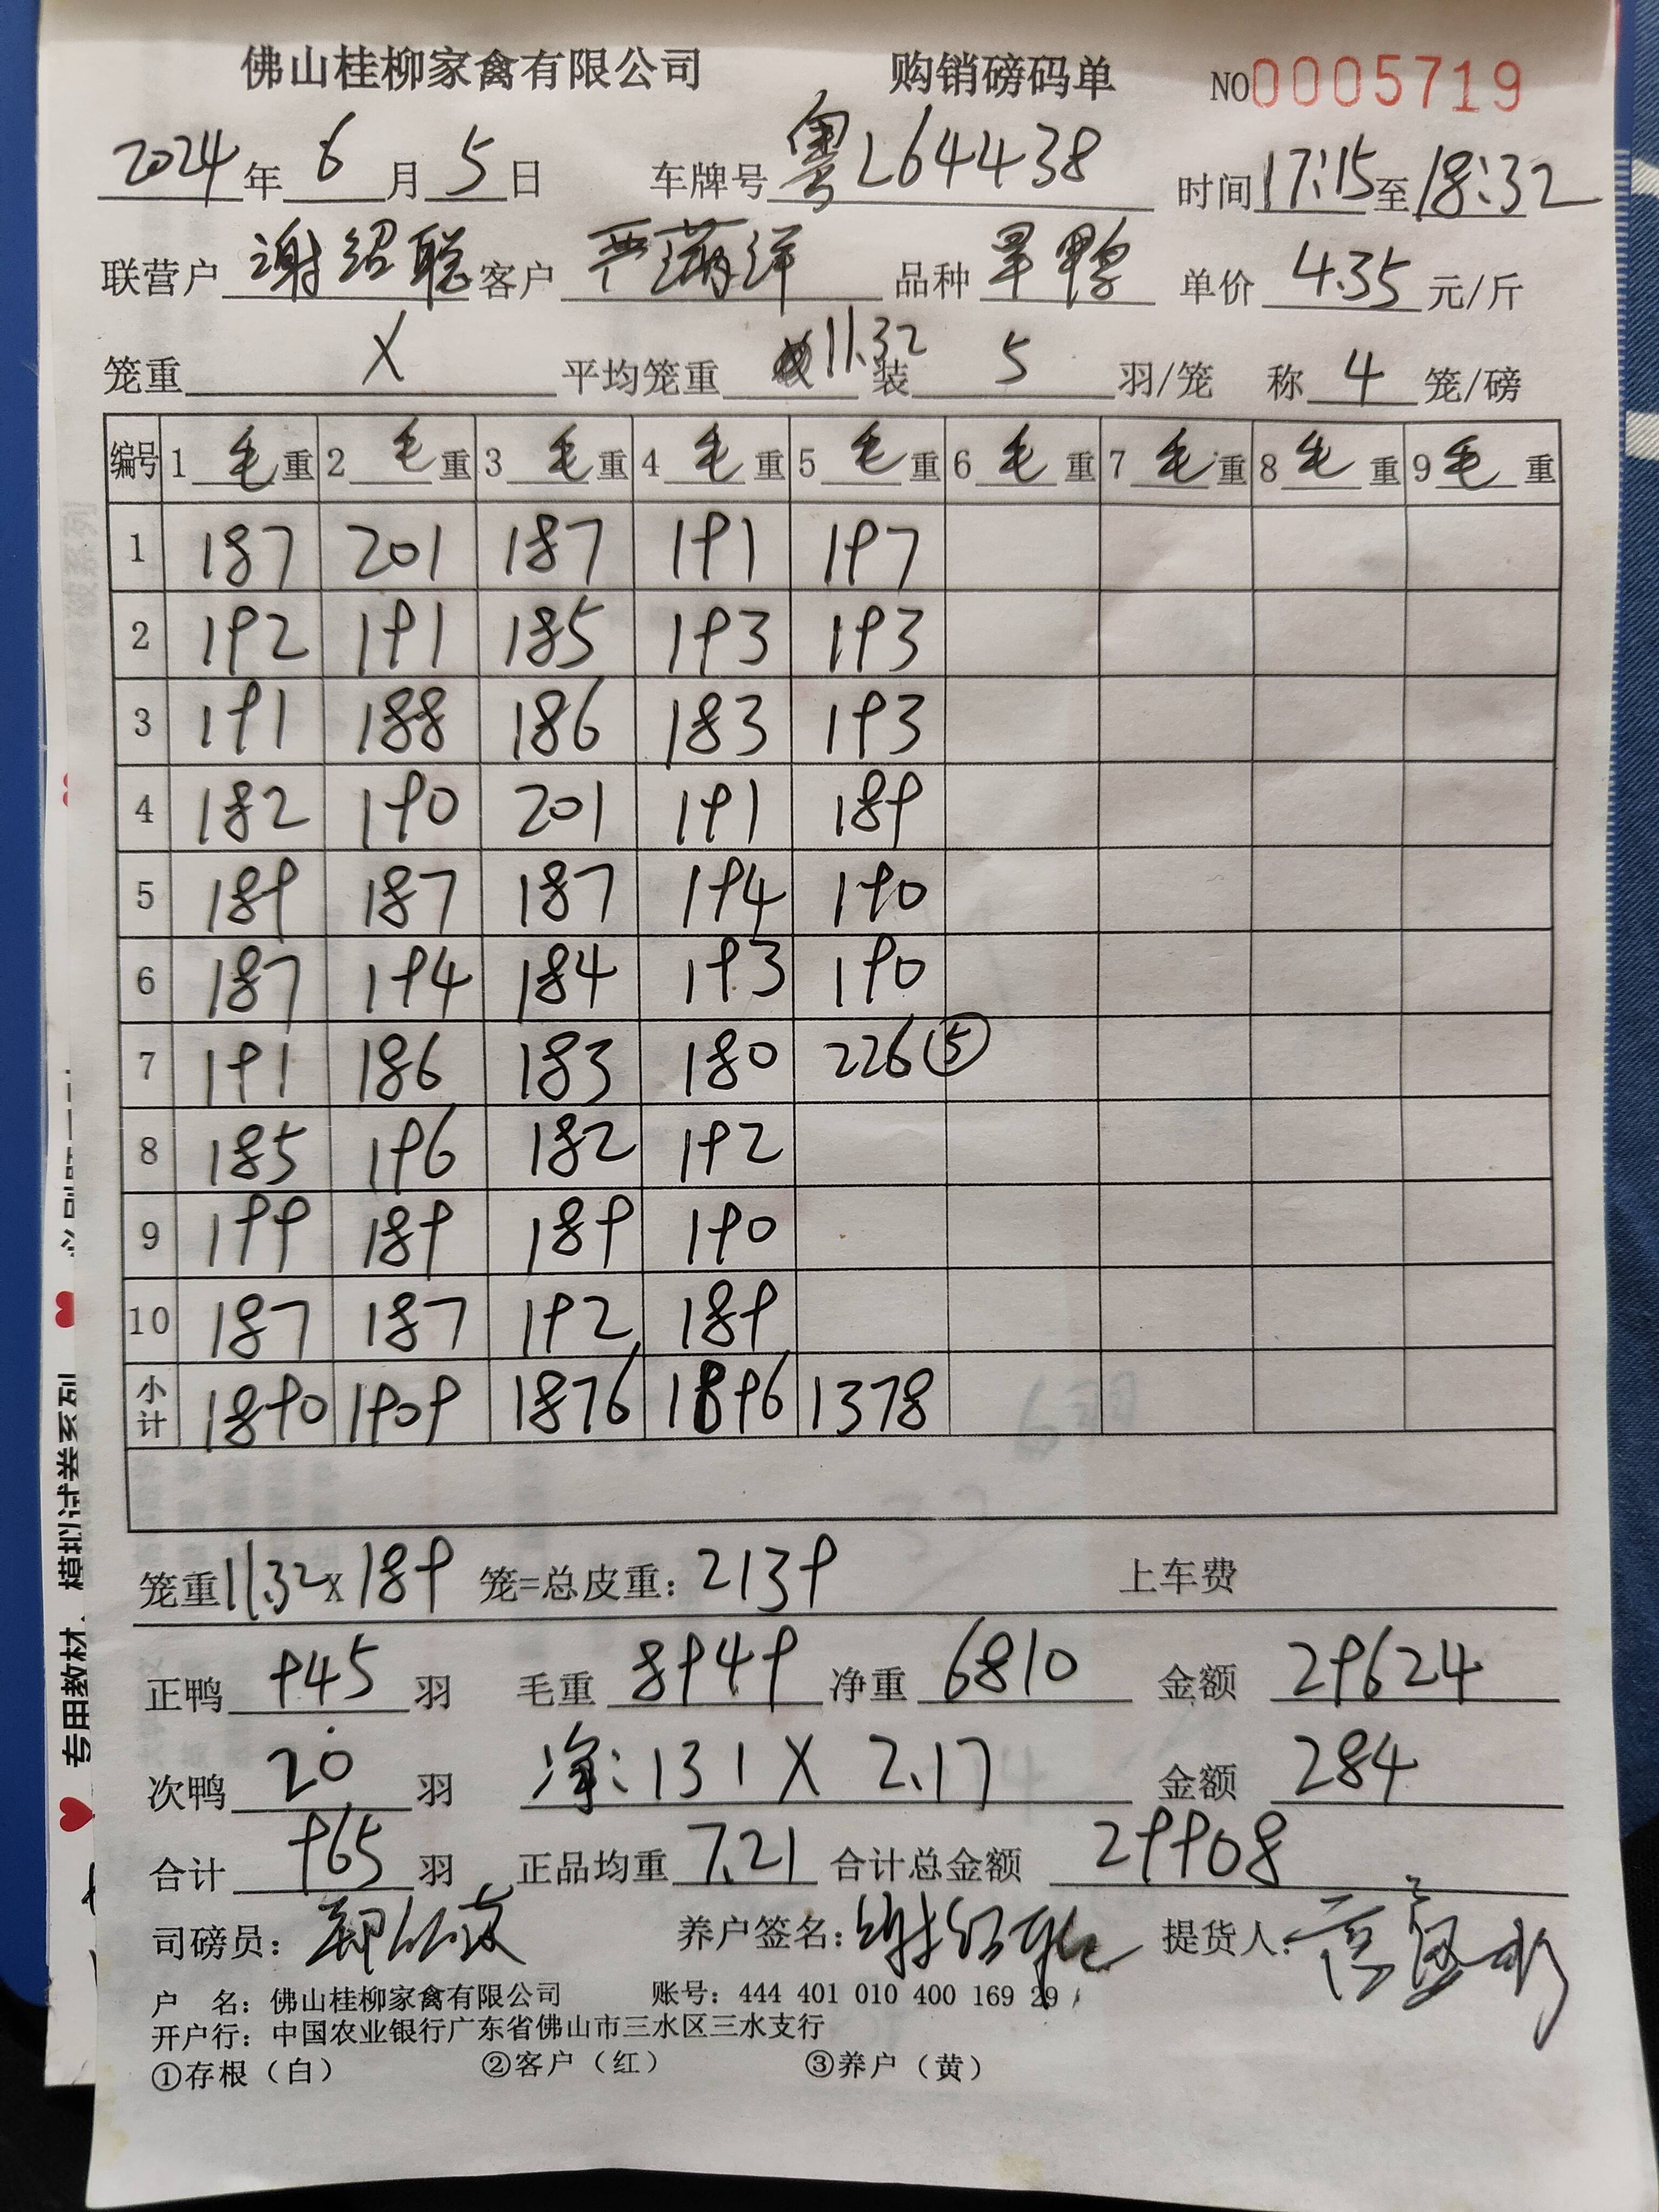 佛山桂柳家禽有限公司 购销磅码单 NO0005719
2024年6月5日 车牌号粤L64438 时间17:15至18:32
联营户谢绍聪客户严满洋 品种旱鸭 单价4.35元/斤
笼重X 平均笼重11.32装5羽/笼 称4笼/磅
编号 1毛重 2毛重 3毛重 4毛重 5毛重 6毛重 7毛重 8毛重 9毛重
1 187 201 187 191 197
2 192 191 185 193 193
3 191 188 186 183 193
4 182 190 201 191 189
5 189 187 187 194 190
6 187 194 184 193 190
7 191 186 183 180 226⑤
8 185 196 182 192
9 199 189 189 190
10 187 187 192 189
小计 1890 1909 1876 1896 1378
笼重11.32X189笼=总皮重:2139 上车费
正鸭945羽 毛重8949净重6810 金额29624
次鸭20羽 净:131X2.17 金额284
合计965羽 正品均重7.21合计总金额29908
司磅员: 养户签名:谢绍聪 提货人:
户 名:佛山桂柳家禽有限公司 账号:444 401 010 400 169 29
开户行:中国农业银行广东省佛山市三水区三水支行
①存根(白) ②客户(红) ③养户(黄)
专用教材、模拟试卷系列